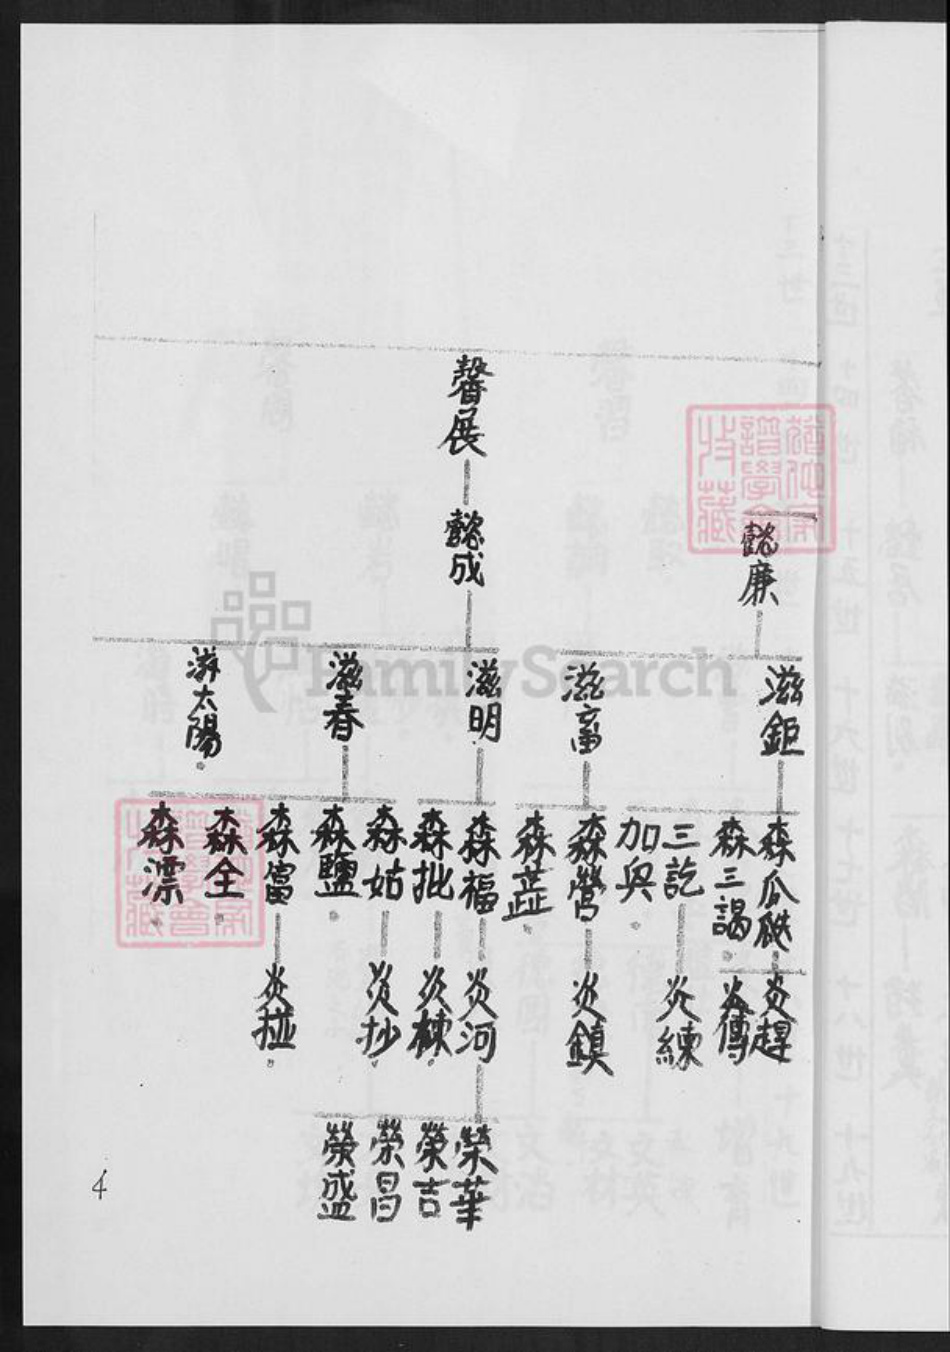 馨展
懿成
懿廉
滋鉅
滋畜
滋明
滋春
游太陽
森瓜
森三謁
三訖
加與
森鶯
森福
森批
森姑
森鹽
森富
森全
森漂
炎趕
炎傳
炎練
炎鎮
炎河
炎棟
炎抄
炎
榮華
榮吉
榮昌
榮盛
4
FamilySearch